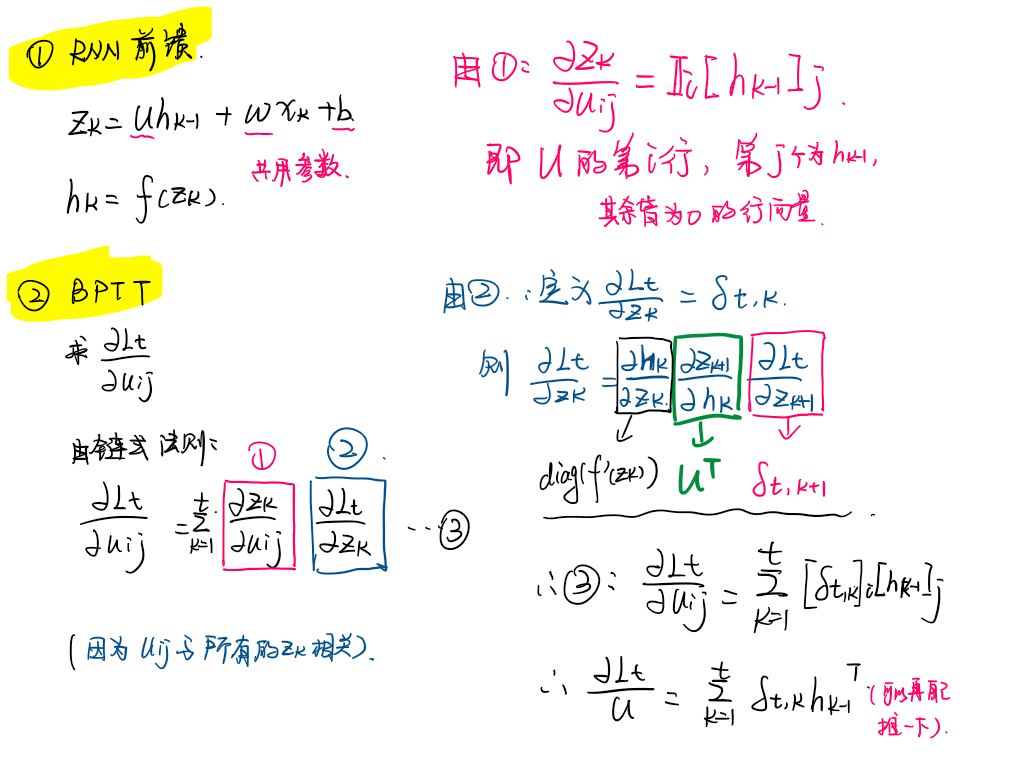 ① RNN 前馈.
z_k = U h_{k-1} + W x_k + b
共用参数.
h_k = f(z_k).
② BPTT
求 ∂L_t/∂u_{ij}
由链式法则:
① ②.
∂L_t/∂u_{ij} = Σ_{k=1}^{t} ∂z_k/∂u_{ij} ∂L_t/∂z_k ...③
(因为 u_{ij} 与所有的 z_k 相关).
由①: ∂z_k/∂u_{ij} = 𝕀_i[h_{k-1}]_j.
即 U 的第 i 行, 第 j 个为 h_{k-1},
其余皆为 0 的行向量.
由②: 定义 ∂L_t/∂z_k = δ_{t,k}.
则 ∂L_t/∂z_k = ∂h_k/∂z_k. ∂z_{k+1}/∂h_k ∂L_t/∂z_{k+1}
diag(f'(z_k)) U^T δ_{t,k+1}
∴③: ∂L_t/∂u_{ij} = Σ_{k=1}^{t} [δ_{t,k}]_i [h_{k-1}]_j
∴ ∂L_t/U = Σ_{k=1}^{t} δ_{t,k} h_{k-1}^T (可以再自己
推一下).